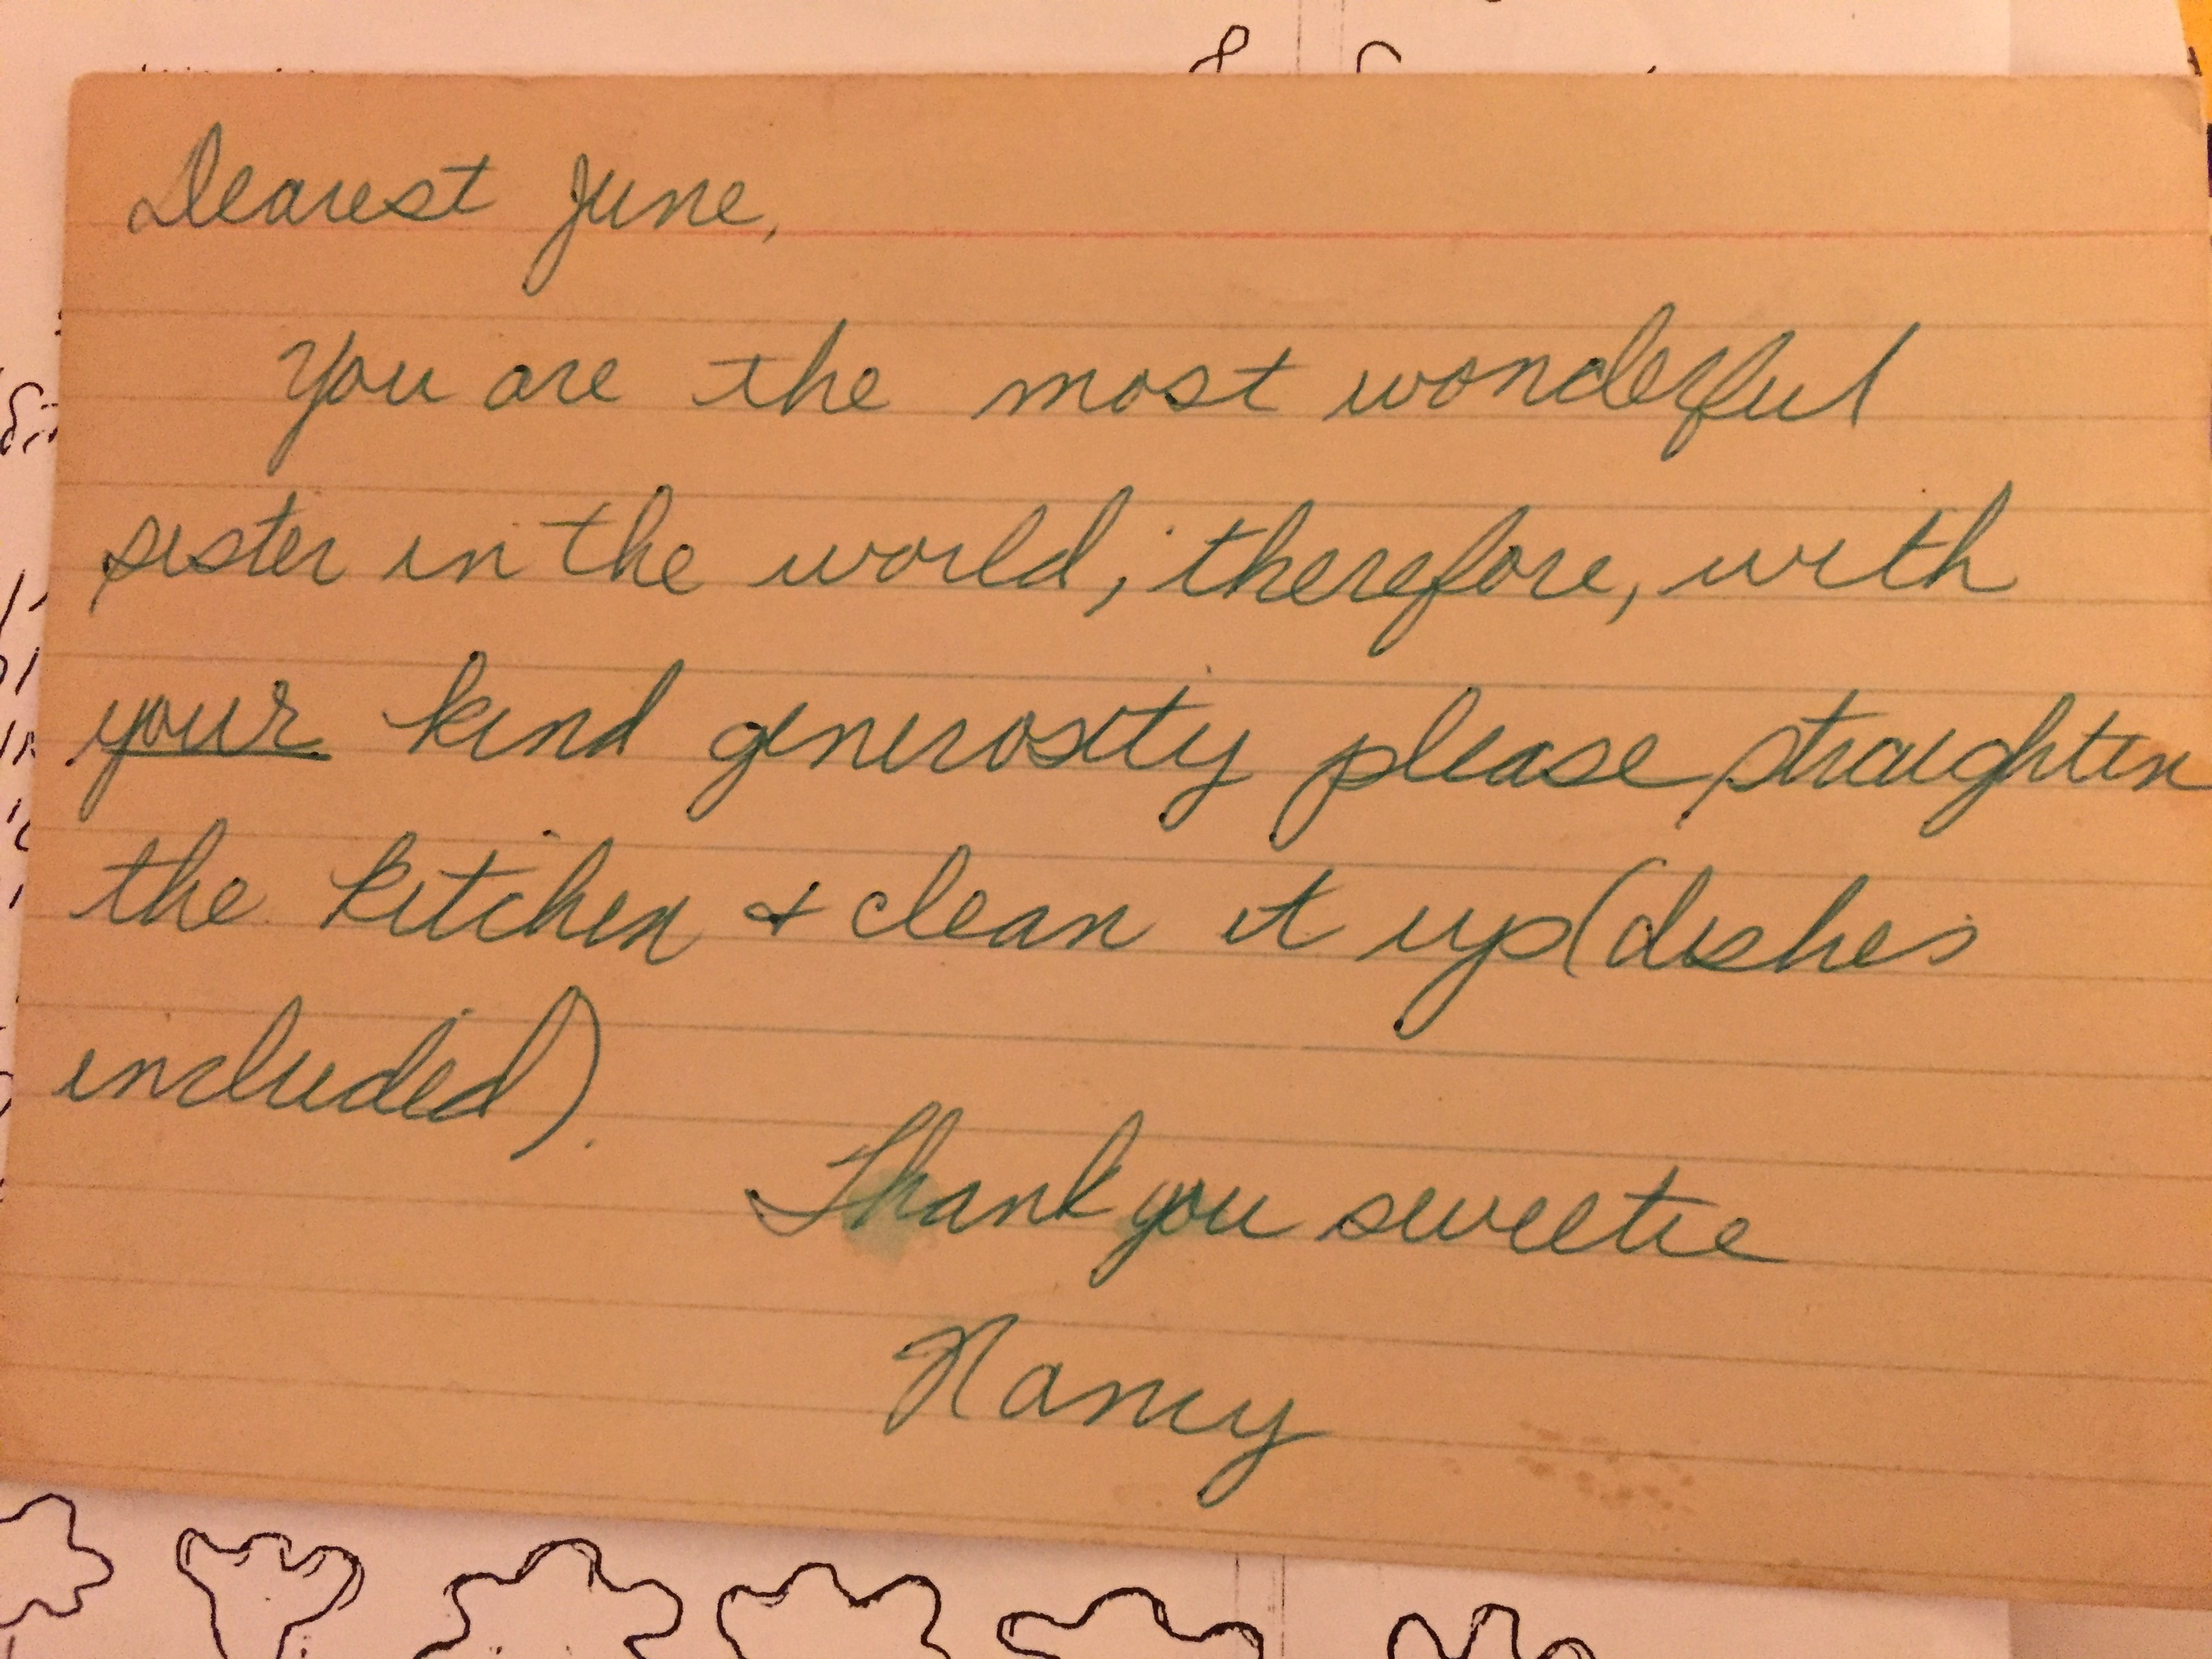 Dearest June,
You are the most wonderful
sister in the world, therefore, with
your kind generosity please straighten
the kitchen & clean it up (dishes
included).
Thank you sweetie
Nancy